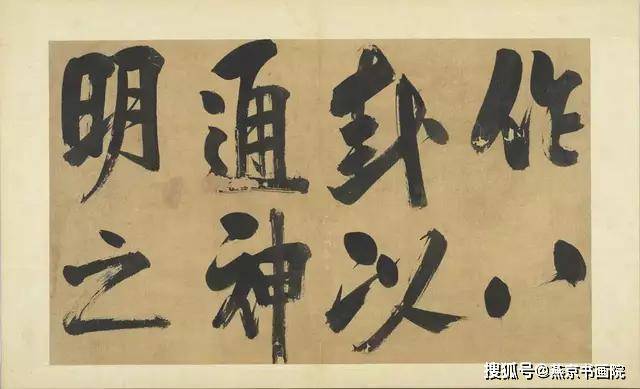 作八
卦以
通神
明之
搜狐号@燕京书画院